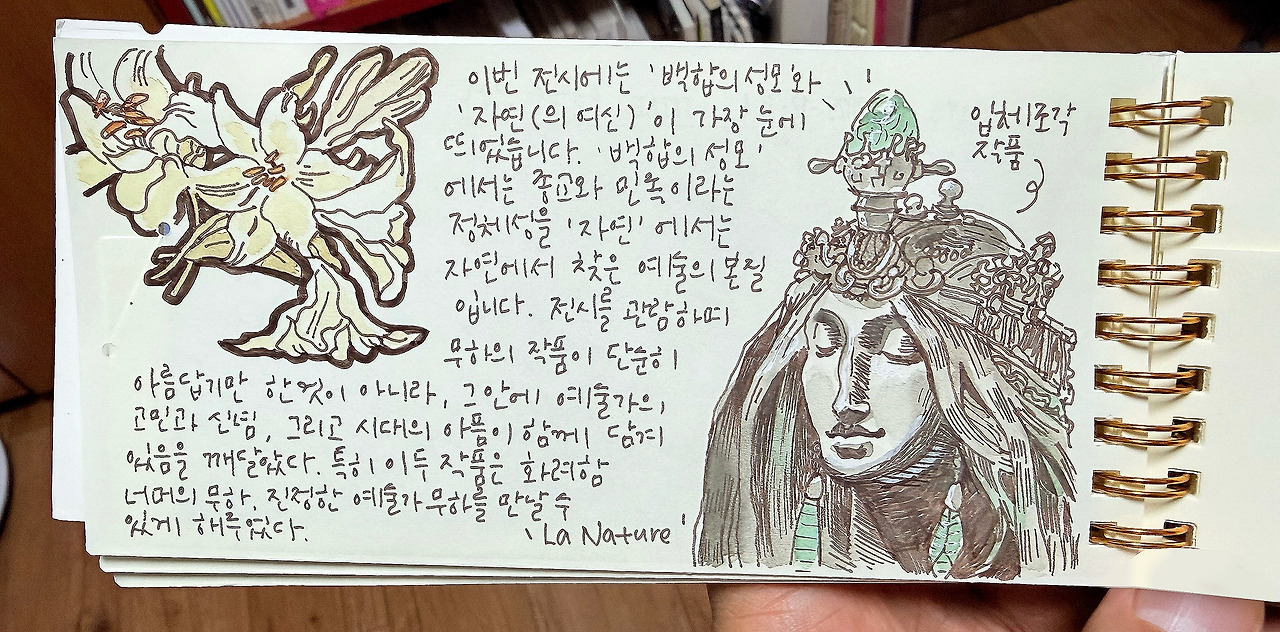 이번 전시에는 '백합의 성모'와
'자연(의 여신)'이 가장 눈에
띄었습니다. '백합의 성모'
에서는 종교와 민족이라는
정체성을 '자연'에서는
자연에서 찾은 예술의 본질
입니다. 전시를 관람하며
무하의 작품이 단순히
아름답기만 한것이 아니라, 그안에 예술가의
고민과 신념, 그리고 시대의 아픔이 함께 담겨
있음을 깨달았다. 특히 이 두 작품은 화려함
너머의 무하, 진정한 예술가 무하를 만날 수
있게 해주었다.
'La Nature'
입체조각
작품